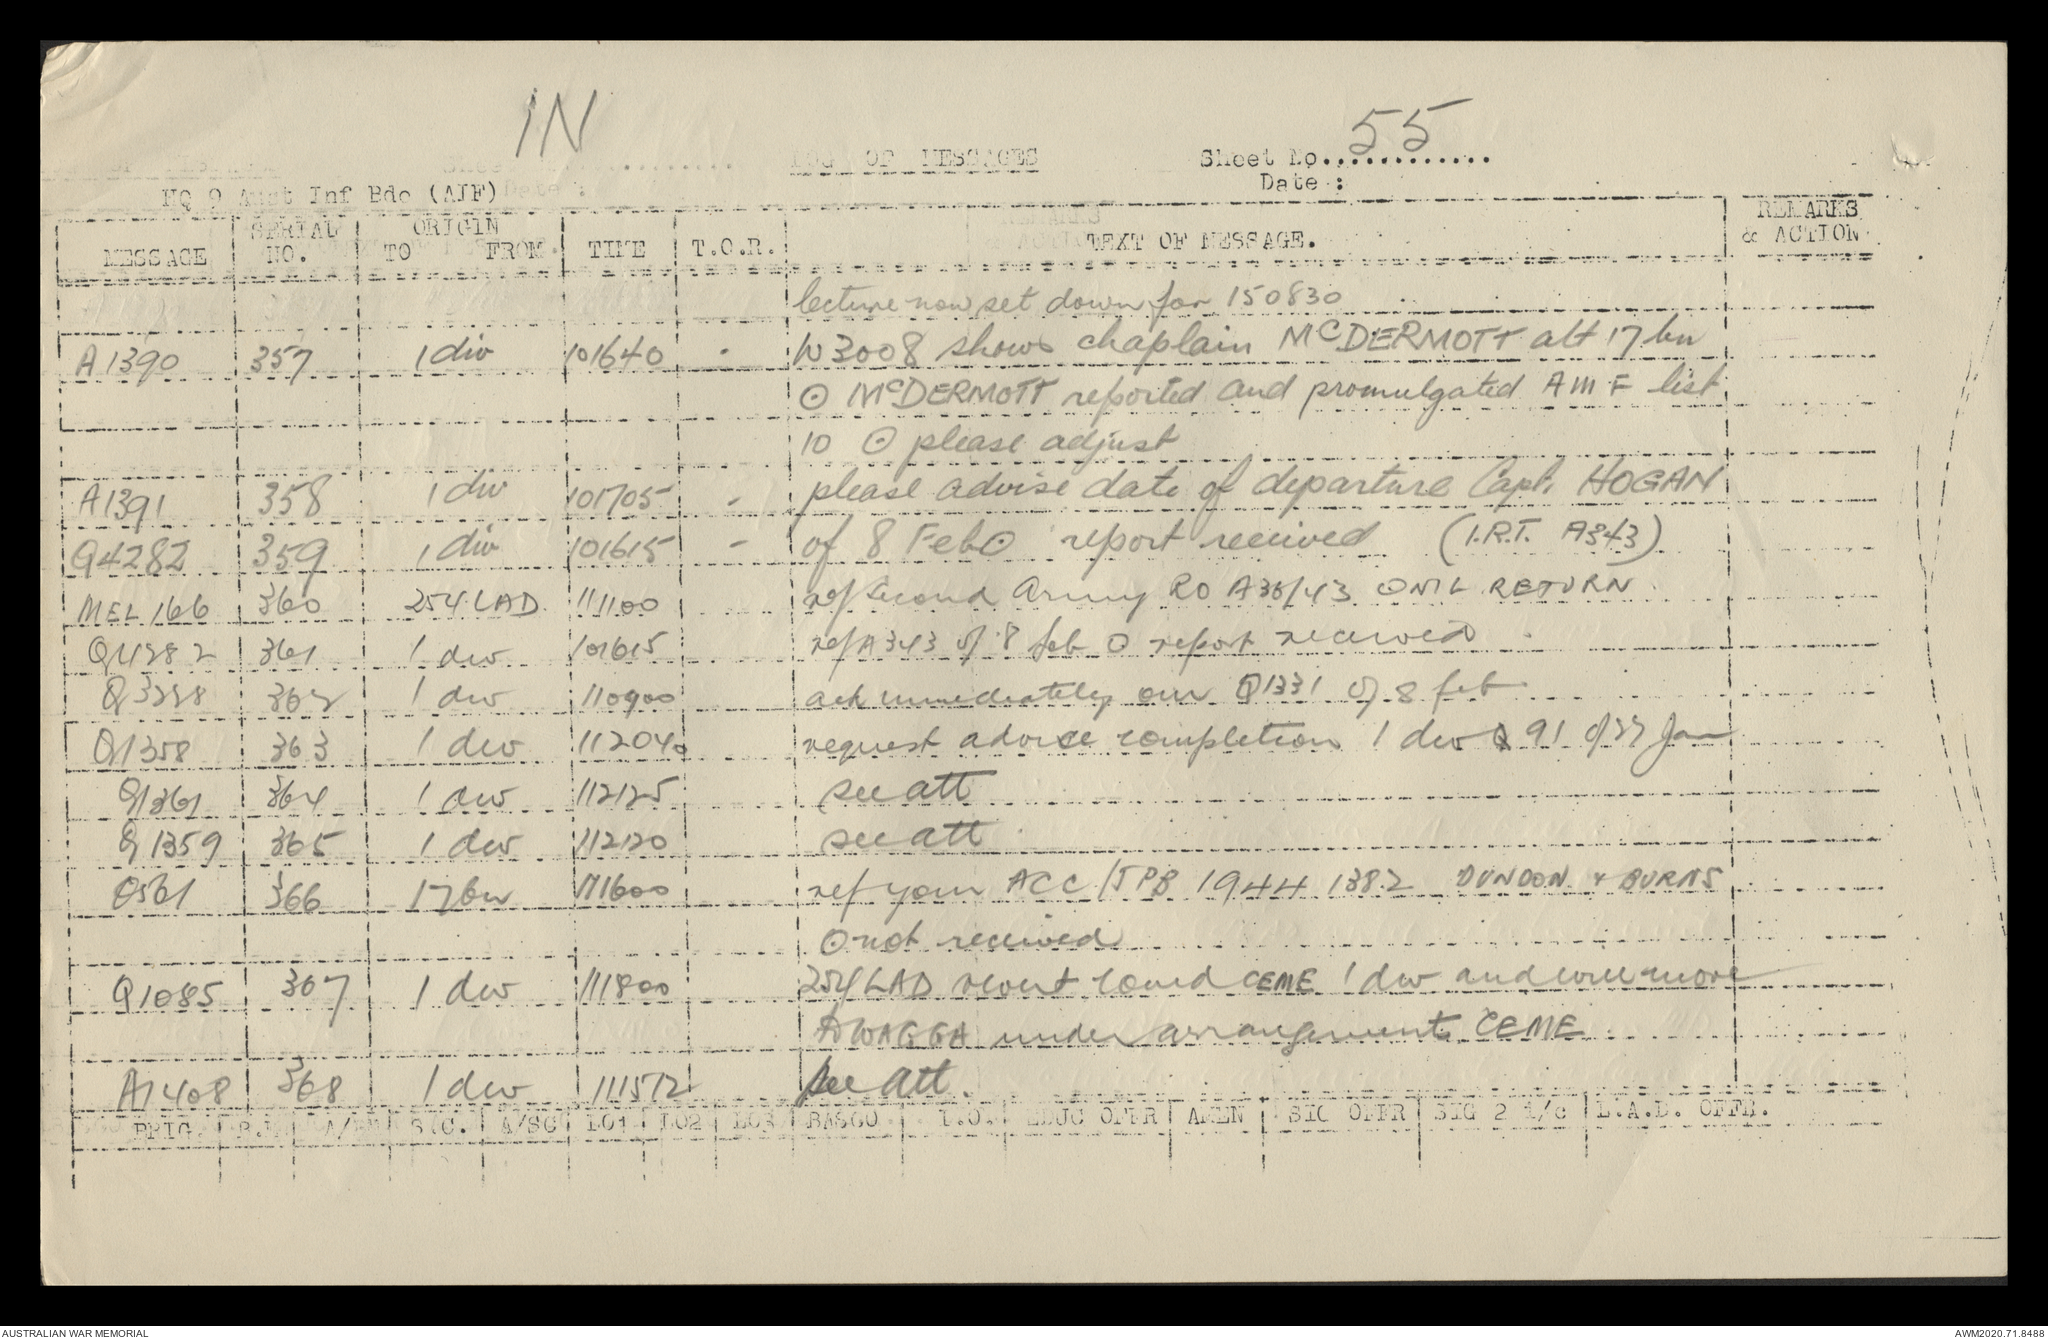 IN
LOG OF MESSAGES
Sheet No. 55
Date :
HQ 9 Aust Inf Bde (AIF)
MESSAGE SERIAL NO. ORIGIN TO FROM TIME T.O.R. TEXT OF MESSAGE. REMARKS & ACTION
lecture now set down for 150830
A1390 357 1 div 101640 - W3008 shows chaplain McDERMOTT att 17 bn
⊙ McDERMOTT reported and promulgated AMF list
10 ⊙ please adjust
A1391 358 1 div 101705 - please advise date of departure Capt. HOGAN
Q4282 359 1 div 101615 - of 8 Feb ⊙ report received (I.R.T. A343)
MEL 166 360 254 LAD 111100 ref Second Army RO A36/43 ⊙ NIL RETURN
Q4282 361 1 div 101615 ref A343 of 8 feb ⊙ report received
Q3228 362 1 div 110900 ack immediately our Q1331 of 8 feb
Q1358 363 1 div 112040 request advice completion 1 div Q91 of 27 Jan
Q1361 364 1 div 112125 see att
Q1359 365 1 div 112120 see att
0561 366 17 bn 111600 ref your ACC/JPB 1944 1382 DUNDON & BURNS
⊙ not received
Q1085 367 1 div 111800 254 LAD revert comd CEME 1 div and will move
WAGGA under arrangements CEME
A1408 368 1 div 111512 see att.
BRIG. B.M. S.C. A/SC LO1 LO2 LO3 BASCO I.O. EDUC OFFR AMEN SIG OFFR SIG 2 i/c L.A.D. OFFR.
AUSTRALIAN WAR MEMORIAL
AWM2020.71.8488